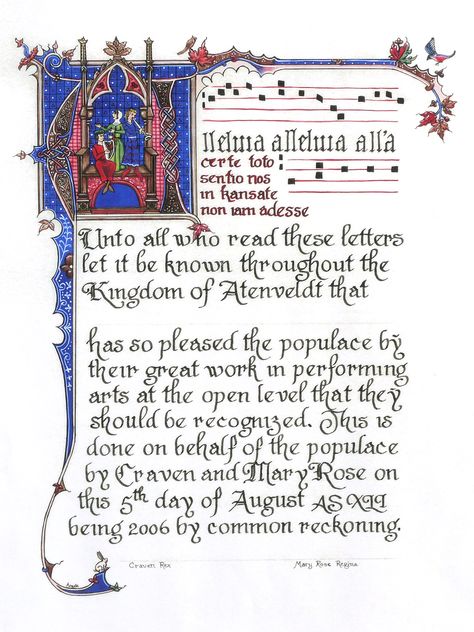 Alleluia alleluia all'a
certe toto
sentio nos
in kansate
non iam adesse
Unto all who read these letters
let it be known throughout the
Kingdom of Atenveldt that
has so pleased the populace by
their great work in performing
arts at the open level that they
should be recognized. This is
done on behalf of the populace
by Craven and Mary Rose on
this 5th day of August AS XLI
being 2006 by common reckoning.
Craven Rex Mary Rose Regina